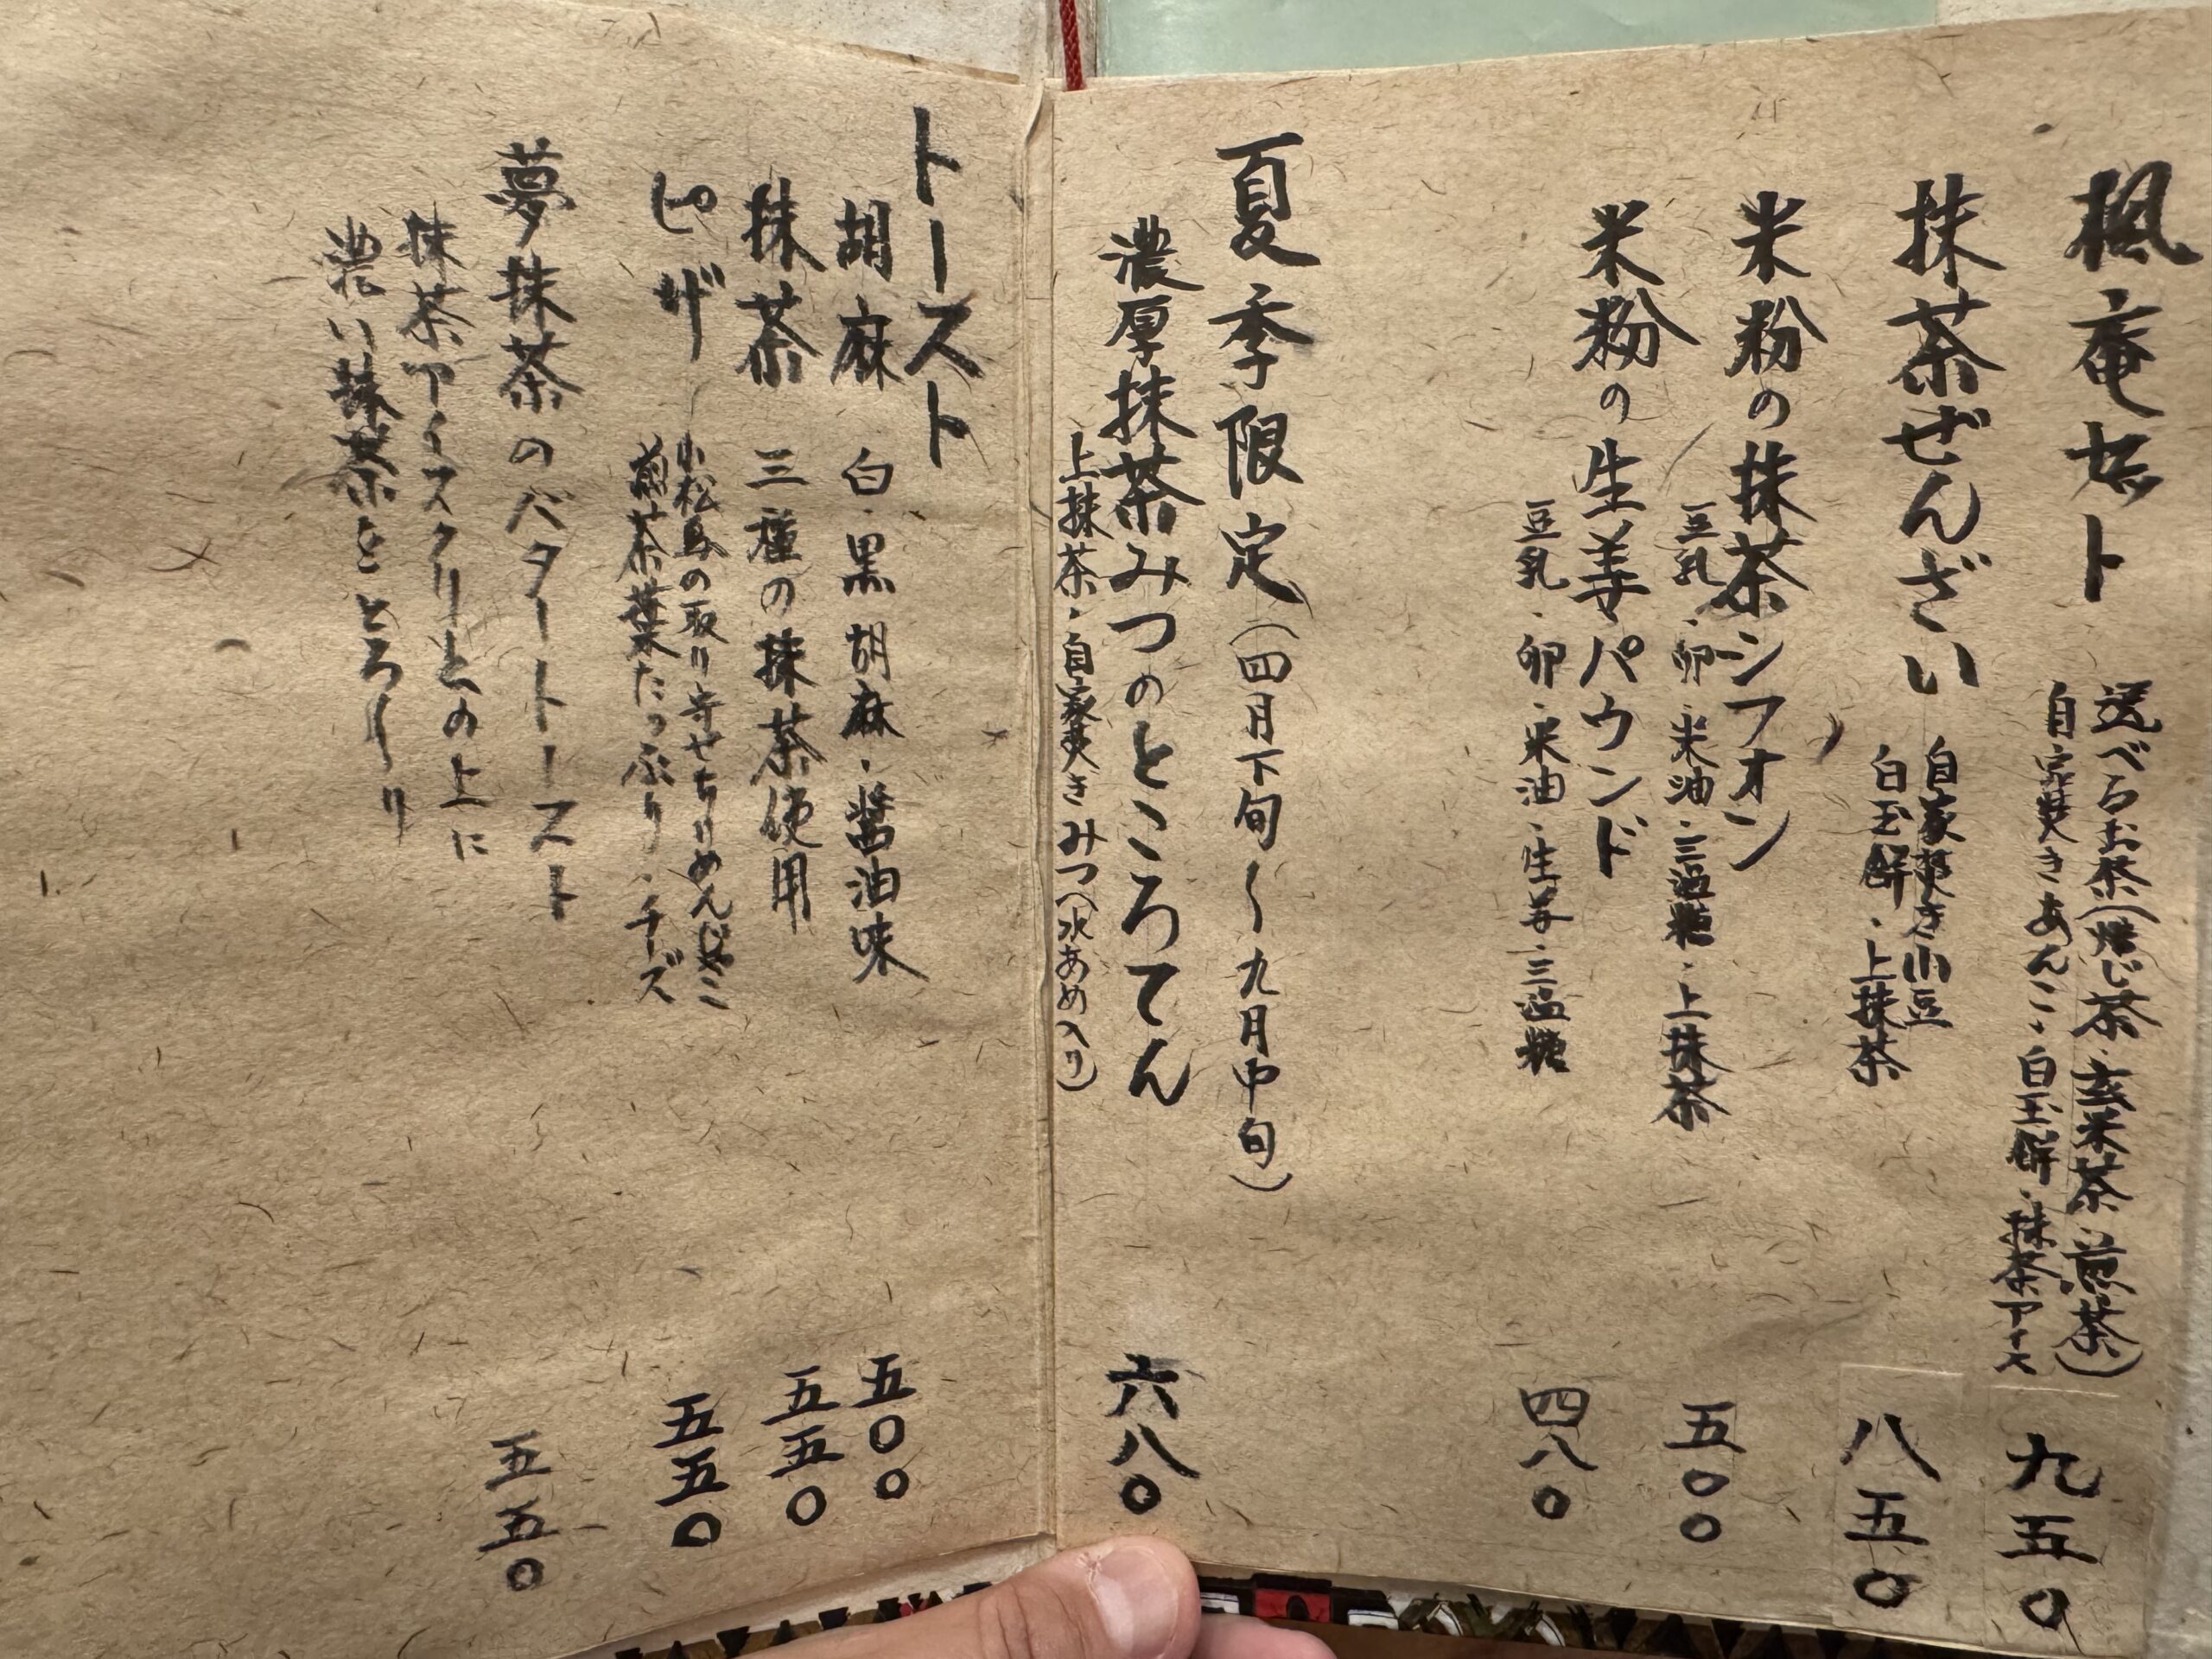 楓庵セット
選べるお茶(焙じ茶・玄米茶・煎茶)
自家焚きあんこ・白玉餅・抹茶アイス
九五〇
抹茶ぜんざい
自家焚き小豆
白玉餅・上抹茶
八五〇
米粉の抹茶シフォン
豆乳・卵・米油・三温糖・上抹茶
五〇〇
米粉の生姜パウンド
豆乳・卵・米油・生姜・三温糖
四八〇
夏季限定(四月下旬〜九月中旬)
濃厚抹茶みつのところてん
上抹茶・自家焚きみつ(水あめ入り)
六八〇
トースト
胡麻 白・黒胡麻・醤油味
五〇〇
抹茶 三種の抹茶使用
五五〇
ピザ
小松島の取り寄せちりめんじゃこ
煎茶葉たっぷり・チーズ
五五〇
夢抹茶のバタートースト
抹茶アイスクリームの上に
濃い抹茶をとろ〜り
五五〇